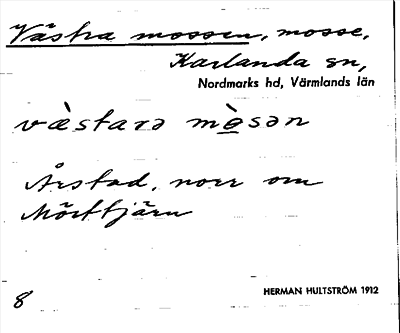 Västra mossen, mosse,
Karlanda sn,
Nordmarks hd, Värmlands län
væ̀stara mòsən
Årstad, norr om
Mörttjärn
HERMAN HULTSTRÖM 1912
8